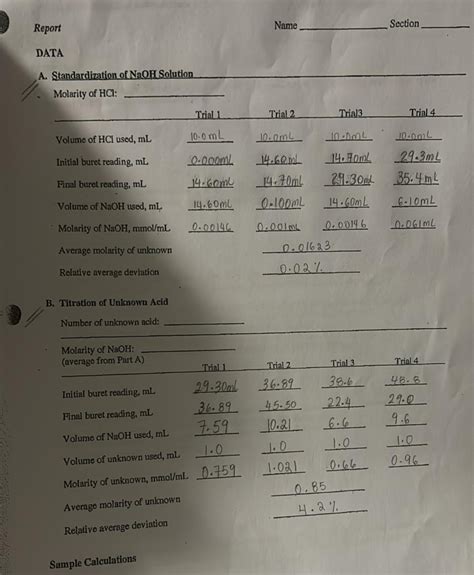 Report Name Section
DATA
A. Standardization of NaOH Solution
Molarity of HCl:
Trial 1 Trial 2 Trial3 Trial 4
Volume of HCl used, mL 10.0mL 10.0mL 10.0mL 10.0mL
Initial buret reading, mL 0.000mL 14.60mL 14.70mL 29.3mL
Final buret reading, mL 14.60mL 14.70mL 29.30mL 35.4mL
Volume of NaOH used, mL 14.60mL 0.100mL 14.60mL 6.10mL
Molarity of NaOH, mmol/mL 0.00146 0.001mL 0.00146 0.061mL
Average molarity of unknown 0.01623
Relative average deviation 0.02%
B. Titration of Unknown Acid
Number of unknown acid:
Molarity of NaOH:
(average from Part A)
Trial 1 Trial 2 Trial 3 Trial 4
Initial buret reading, mL 29.30mL 36.89 38.6 48.8
Final buret reading, mL 36.89 45.50 22.4 29.0
Volume of NaOH used, mL 7.59 10.21 6.6 9.6
Volume of unknown used, mL 1.0 1.0 1.0 1.0
Molarity of unknown, mmol/mL 0.759 1.021 0.66 0.96
Average molarity of unknown 0.85
Relative average deviation 4.2%
Sample Calculations